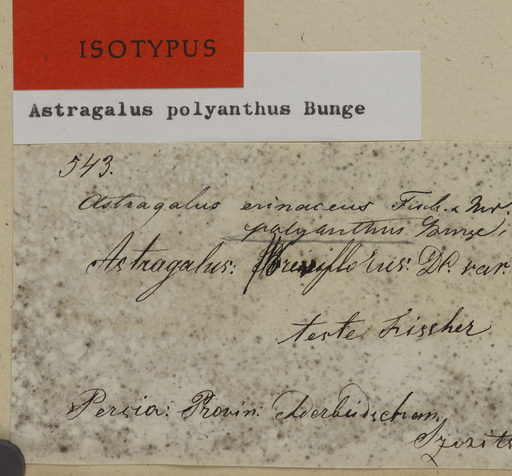 ISOTYPUS
Astragalus polyanthus Bunge
543.
Astragalus erinaceus Fisch. & Mr.
polyanthus Bunge,
Astragalus: floriflorus: DC. var.
teste Fissher
Persia: Provin: Aderbidschan,
Szovits